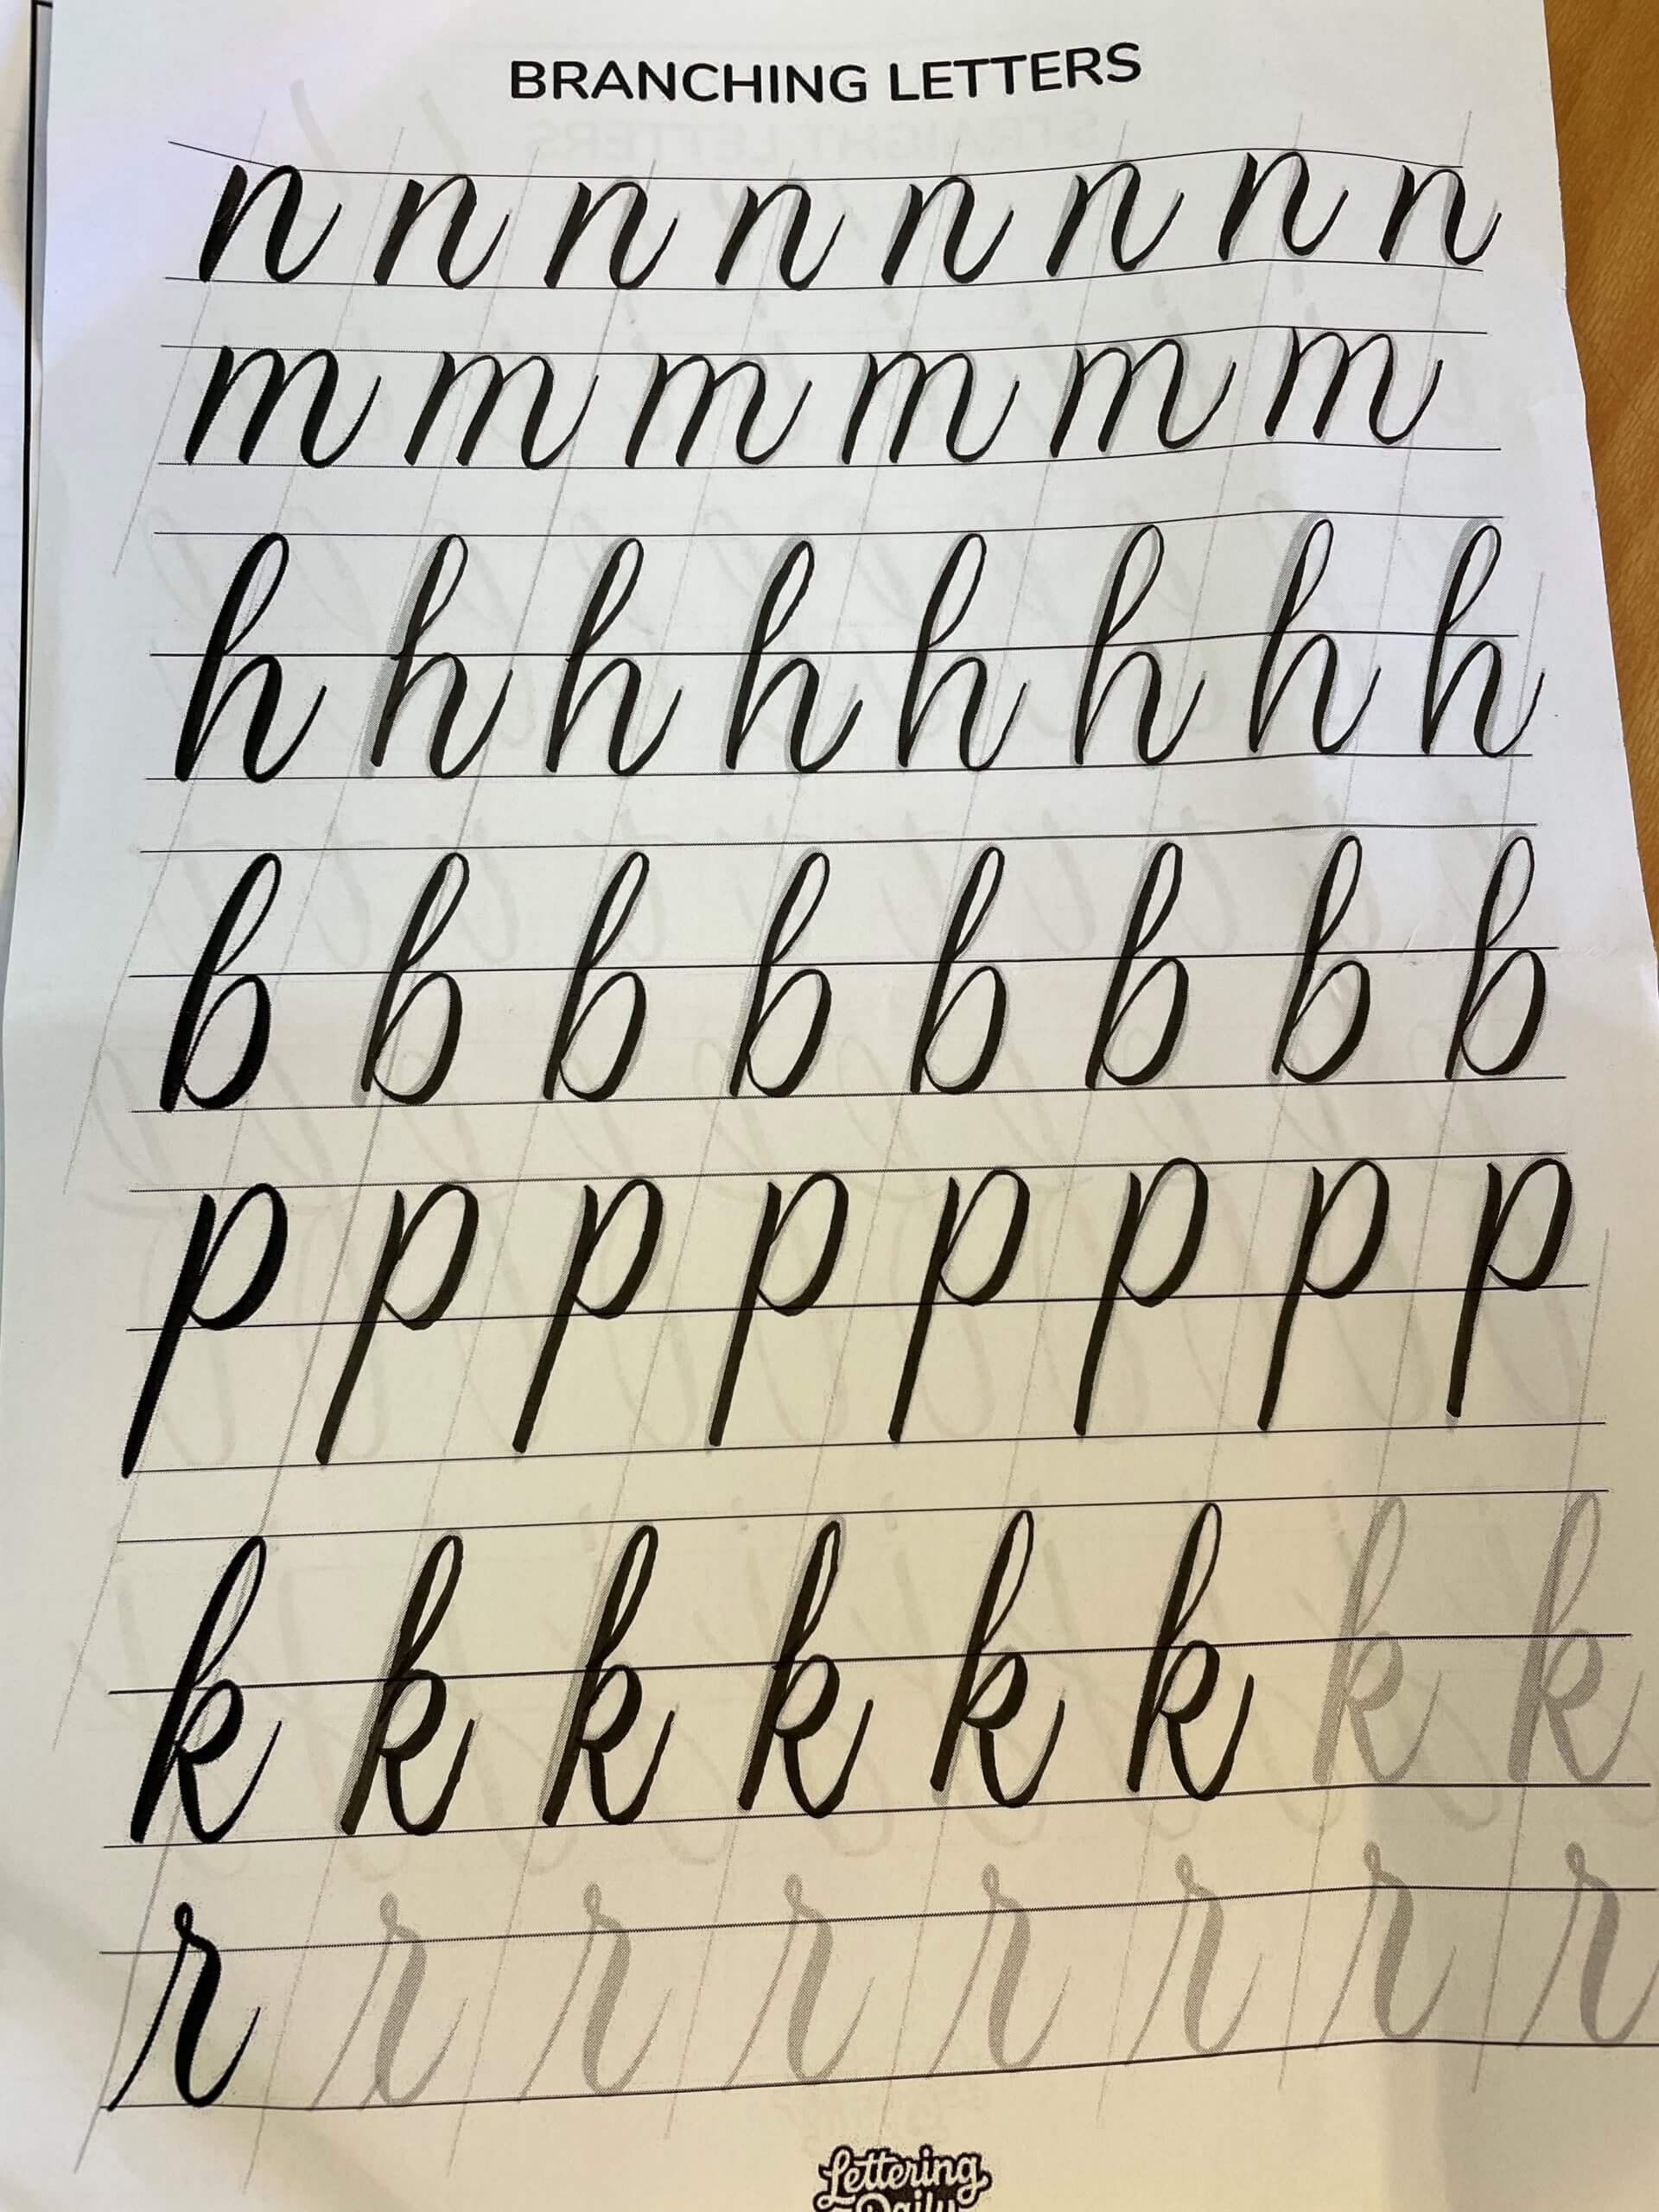 BRANCHING LETTERS
n n n n n n n n
m m m m m m
h h h h h h h h
b b b b b b b b
p p p p p p p p
k k k k k k k k
r r r r r r r r
Lettering
Daily